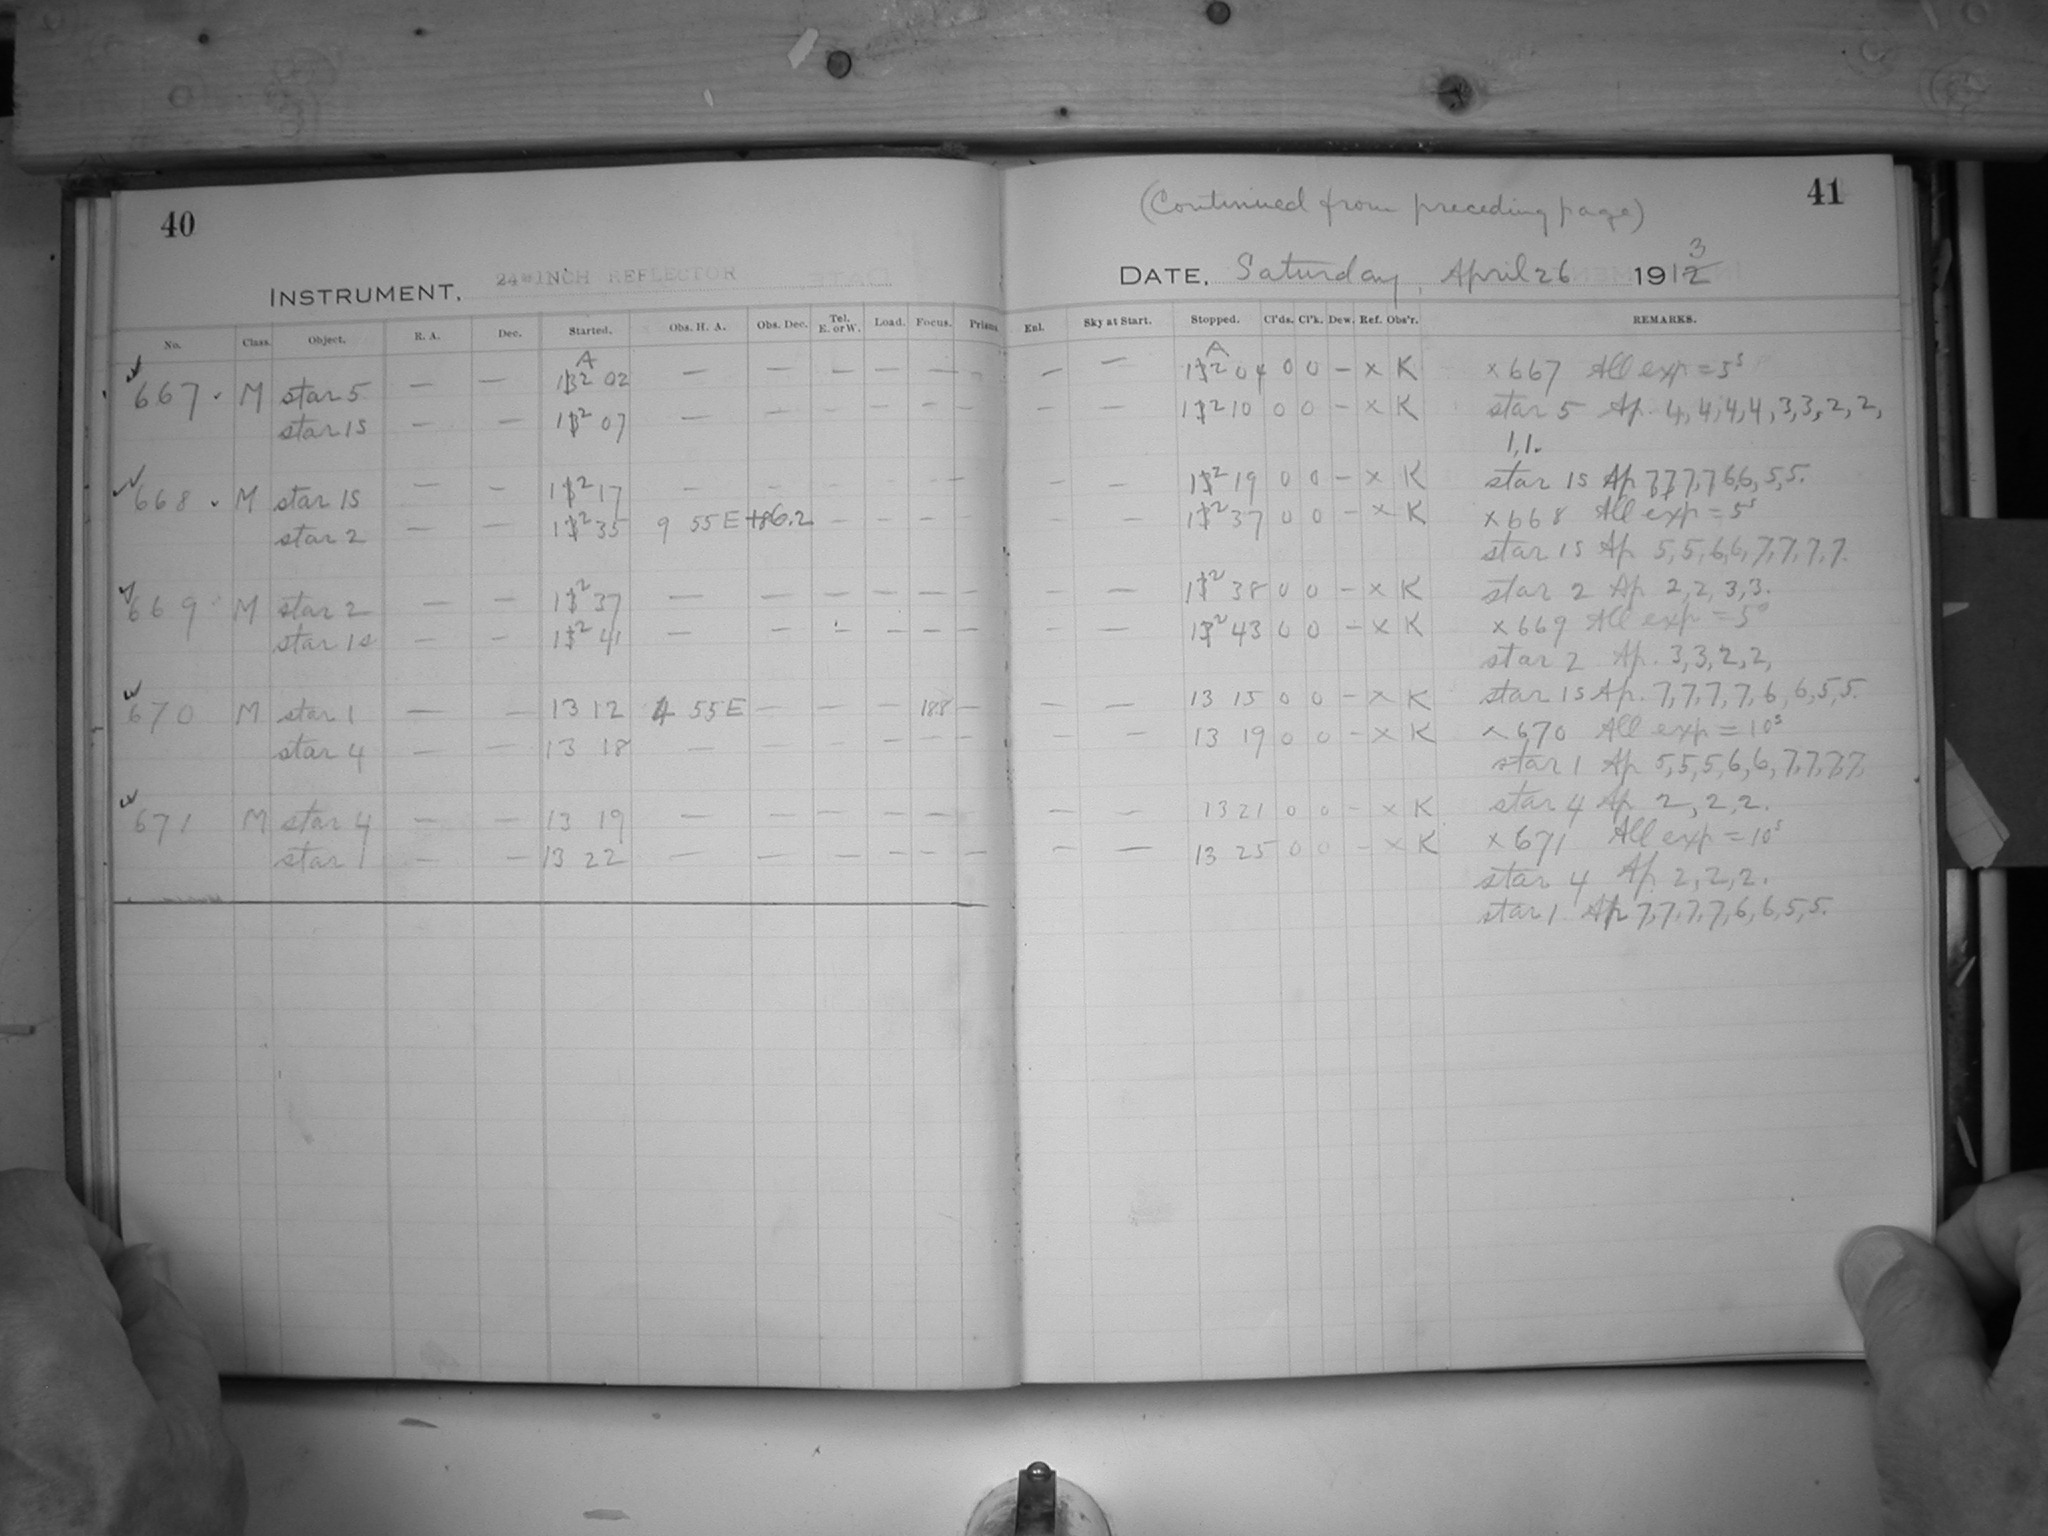 40
INSTRUMENT. 24-INCH REFLECTOR
No. Class. Object. R. A. Dec. Started. Obs. H. A. Obs. Dec. Tel. E. or W. Load. Focus. Prisms
A
667 . M star 5 — — 12 02 — — — — — —
star 1s — — 12 07 — — — — — —
668 . M star 1s — — 12 17 — — — — — —
star 2 — — 12 35 9 55 E +86.2 — — — —
669 M star 2 — — 12 37 — — — — — —
star 1s — — 12 41 — — — — — —
670 M star 1 — — 13 12 4 55 E — — — 188 —
star 4 — — 13 18 — — — — — —
671 M star 4 — — 13 19 — — — — —
star 1 — — 13 22 — — — — — —
41
(Continued from preceding page)
DATE. Saturday, April 26 1913
Enl. Sky at Start. Stopped. Cl'ds. Cl'k. Dew. Ref. Obs'r. REMARKS.
A
— — 12 04 0 0 — x K x 667 All exp = 5s
— — 12 10 0 0 — x K star 5 Ap. 4,4,4,4,3,3,2,2,
1,1.
— — 12 19 0 0 — x K star 1s Ap 7,7,7,7 6,6,5,5.
— — 12 37 0 0 — x K x 668 All exp = 5s
star 1s Ap 5,5,6,6,7,7,7,7.
— — 12 38 0 0 — x K star 2 Ap 2,2,3,3.
— — 12 43 0 0 — x K x 669 All exp = 5s
star 2 Ap. 3,3,2,2,
— — 13 15 0 0 — x K star 1s Ap. 7,7,7,7,6,6,5,5.
— — 13 19 0 0 — x K x 670 All exp = 10s
star 1 Ap 5,5,5,6,6,7,7,7,7,
— — 13 21 0 0 — x K star 4 Ap 2,2,2.
— — 13 25 0 0 — x K x 671 All exp = 10s
star 4 Ap 2,2,2.
star 1 Ap 7,7,7,7,6,6,5,5.